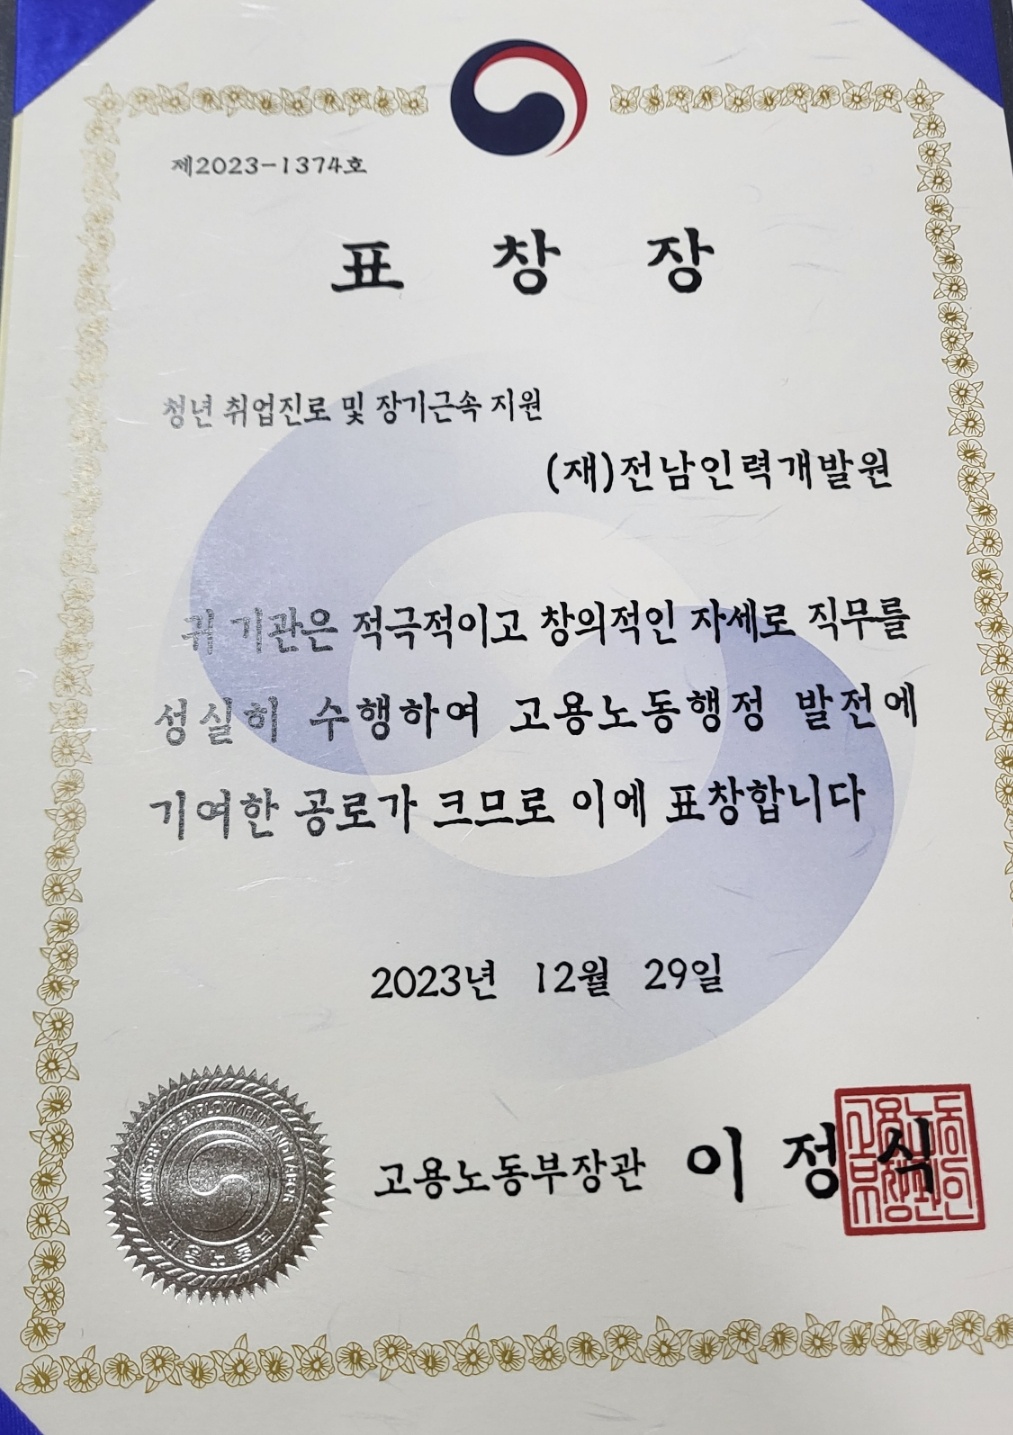 제2023-1374호
표 창 장
청년 취업진로 및 장기근속 지원
(재)전남인력개발원
귀 기관은 적극적이고 창의적인 자세로 직무를
성실히 수행하여 고용노동행정 발전에
기여한 공로가 크므로 이에 표창합니다
2023년 12월 29일
고용노동부장관 이 정 식
고용노동부장관인
MINISTRY OF EMPLOYMENT AND LABOR
고용노동부